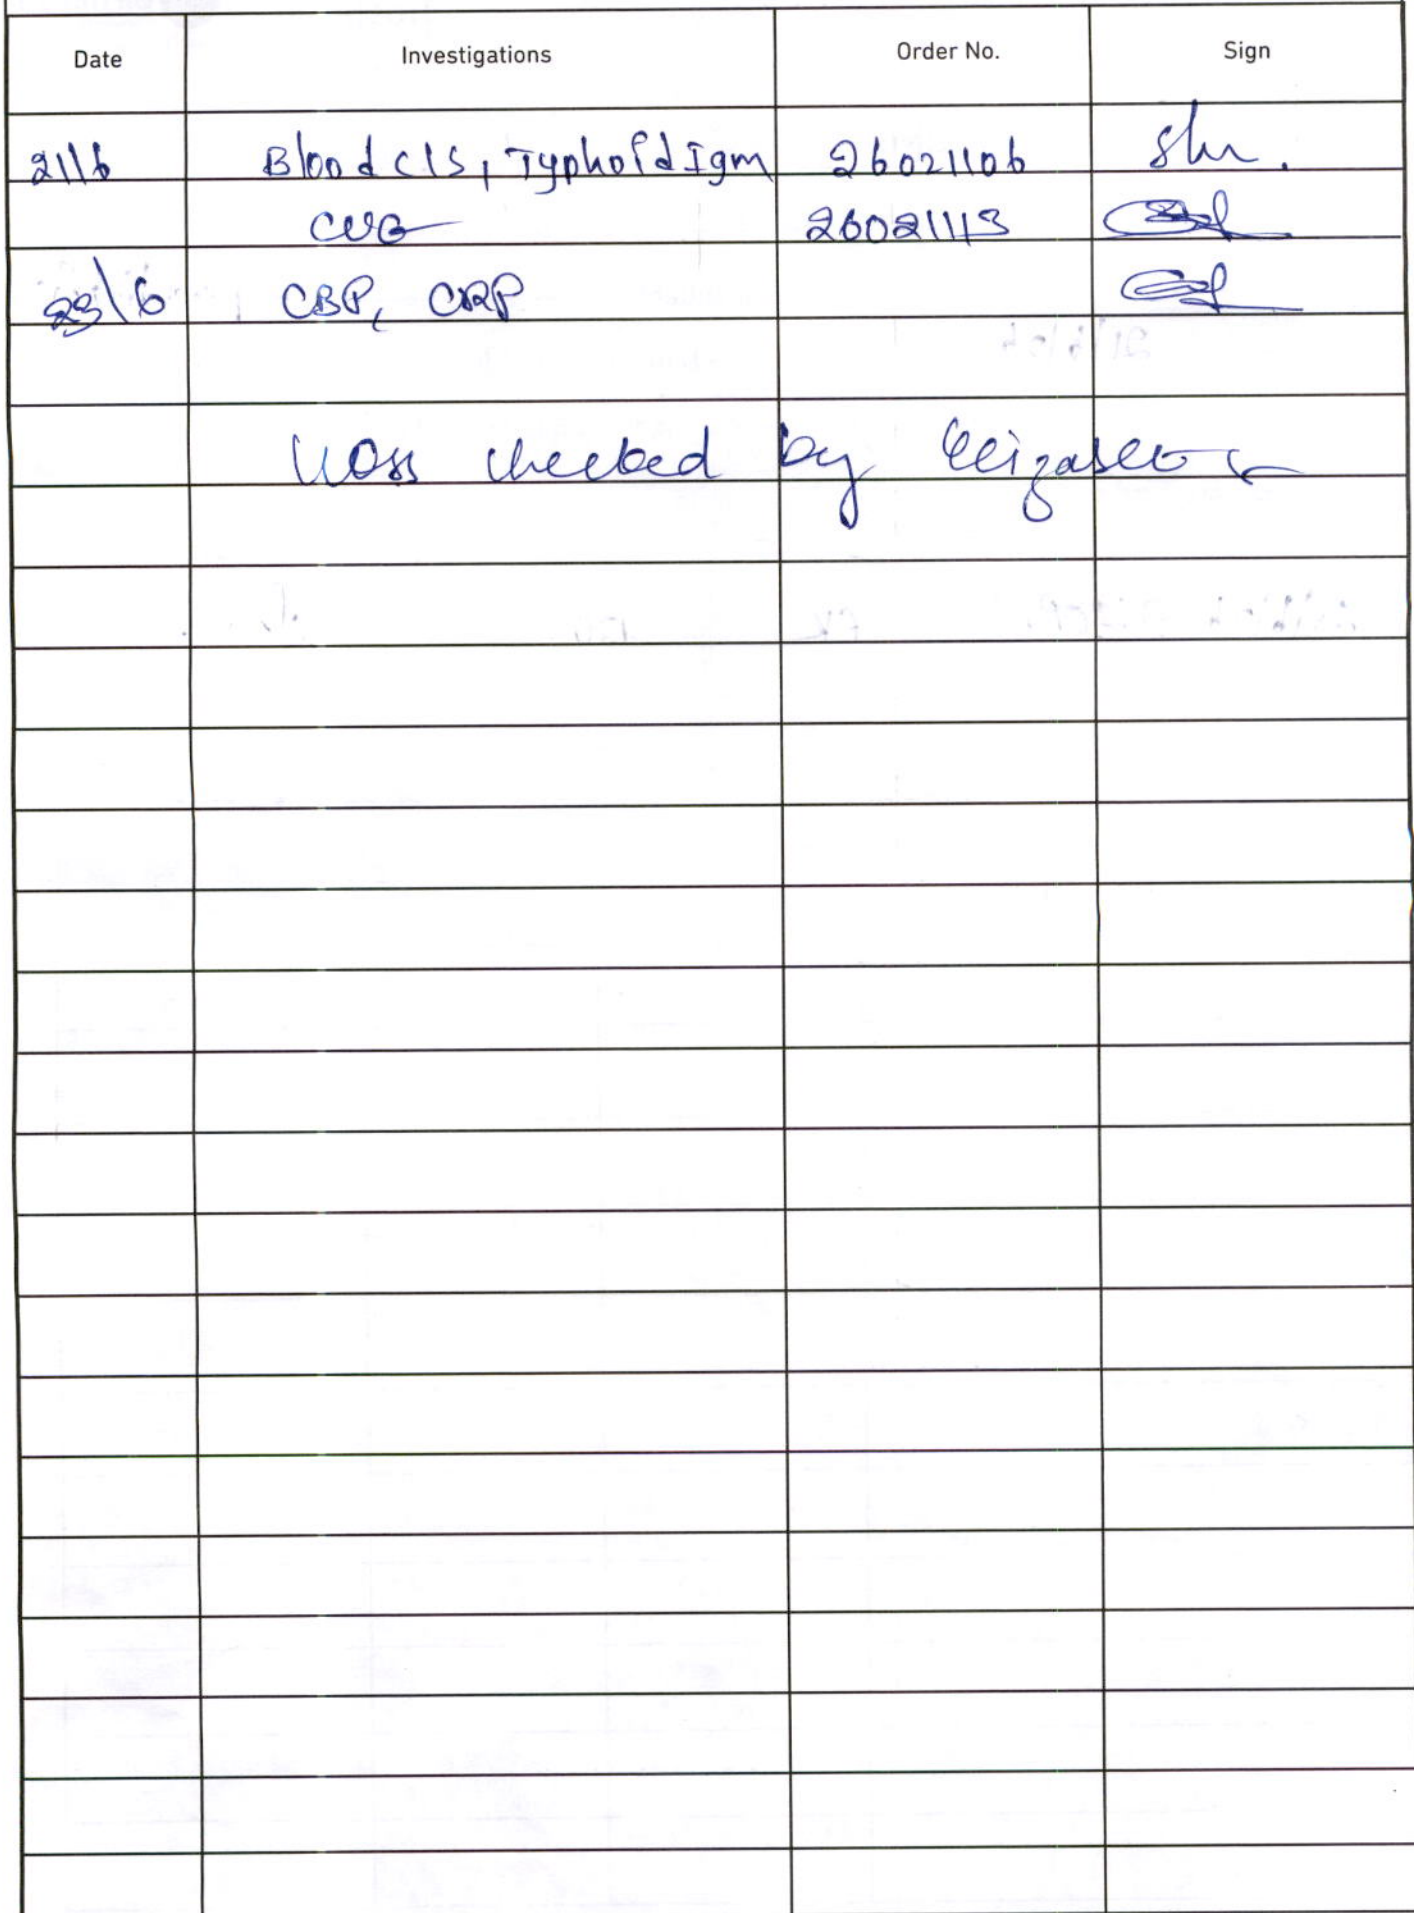 Date Investigations Order No. Sign
21/6 Blood c/s, Typhoid Igm 26021106
26021113
23/6 CBP, CRP
checked by